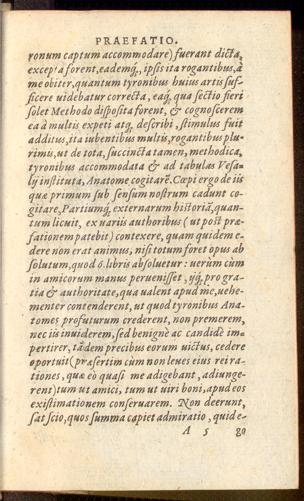 PRAEFATIO.
ronum captum accommodare) fuerant dicta,
excepta forent, eademq́, ipsis ita rogantibus, à
me obiter, quantum tyronibus huius artis suf-
ficere uidebatur correcta, eaq́, qua sectio fieri
solet Methodo disposita forent, & cognoscerem
ea à multis expeti atq; describi, stimulus fuit
additus, ita iubentibus multis, rogantibus plu-
rimis, ut de tota, succincta tamen, methodica,
tyronibus accommodata & ad tabulas Vesa-
lij instituta, Anatome cogitarē. Cœpi ergo de iis
quæ primum sub sensum nostrum cadunt co-
gitare, Partiumq́, externarum historiā, quan-
tum licuit, ex uariis authoribus (ut post præ-
fationem patebit) contexere, quam quidem e-
dere non erat animus, nisi totum foret opus ab
solutum, quod 6. libris absoluetur: uerùm cùm
in amicorum manus peruenisset, ijq́, pro gra-
tia & authoritate, qua ualent apud me, uehe-
menter contenderent, ut quod tyronibus Ana-
tomes profuturum crederent, non premerem,
nec iis inuiderem, sed benignè ac candidè im-
pertirer, tādem precibus eorum uictus, cedere
oportuit (præsertim cùm non leues eius rei ra-
tiones, quæ eò quasi me adigebant, adiunge-
rent) tum ut amici, tum ut uiri boni, apud eos
existimationem conseruarem. Non deerunt,
sat scio, quos summa capiet admiratio, quid e-
A 5 go